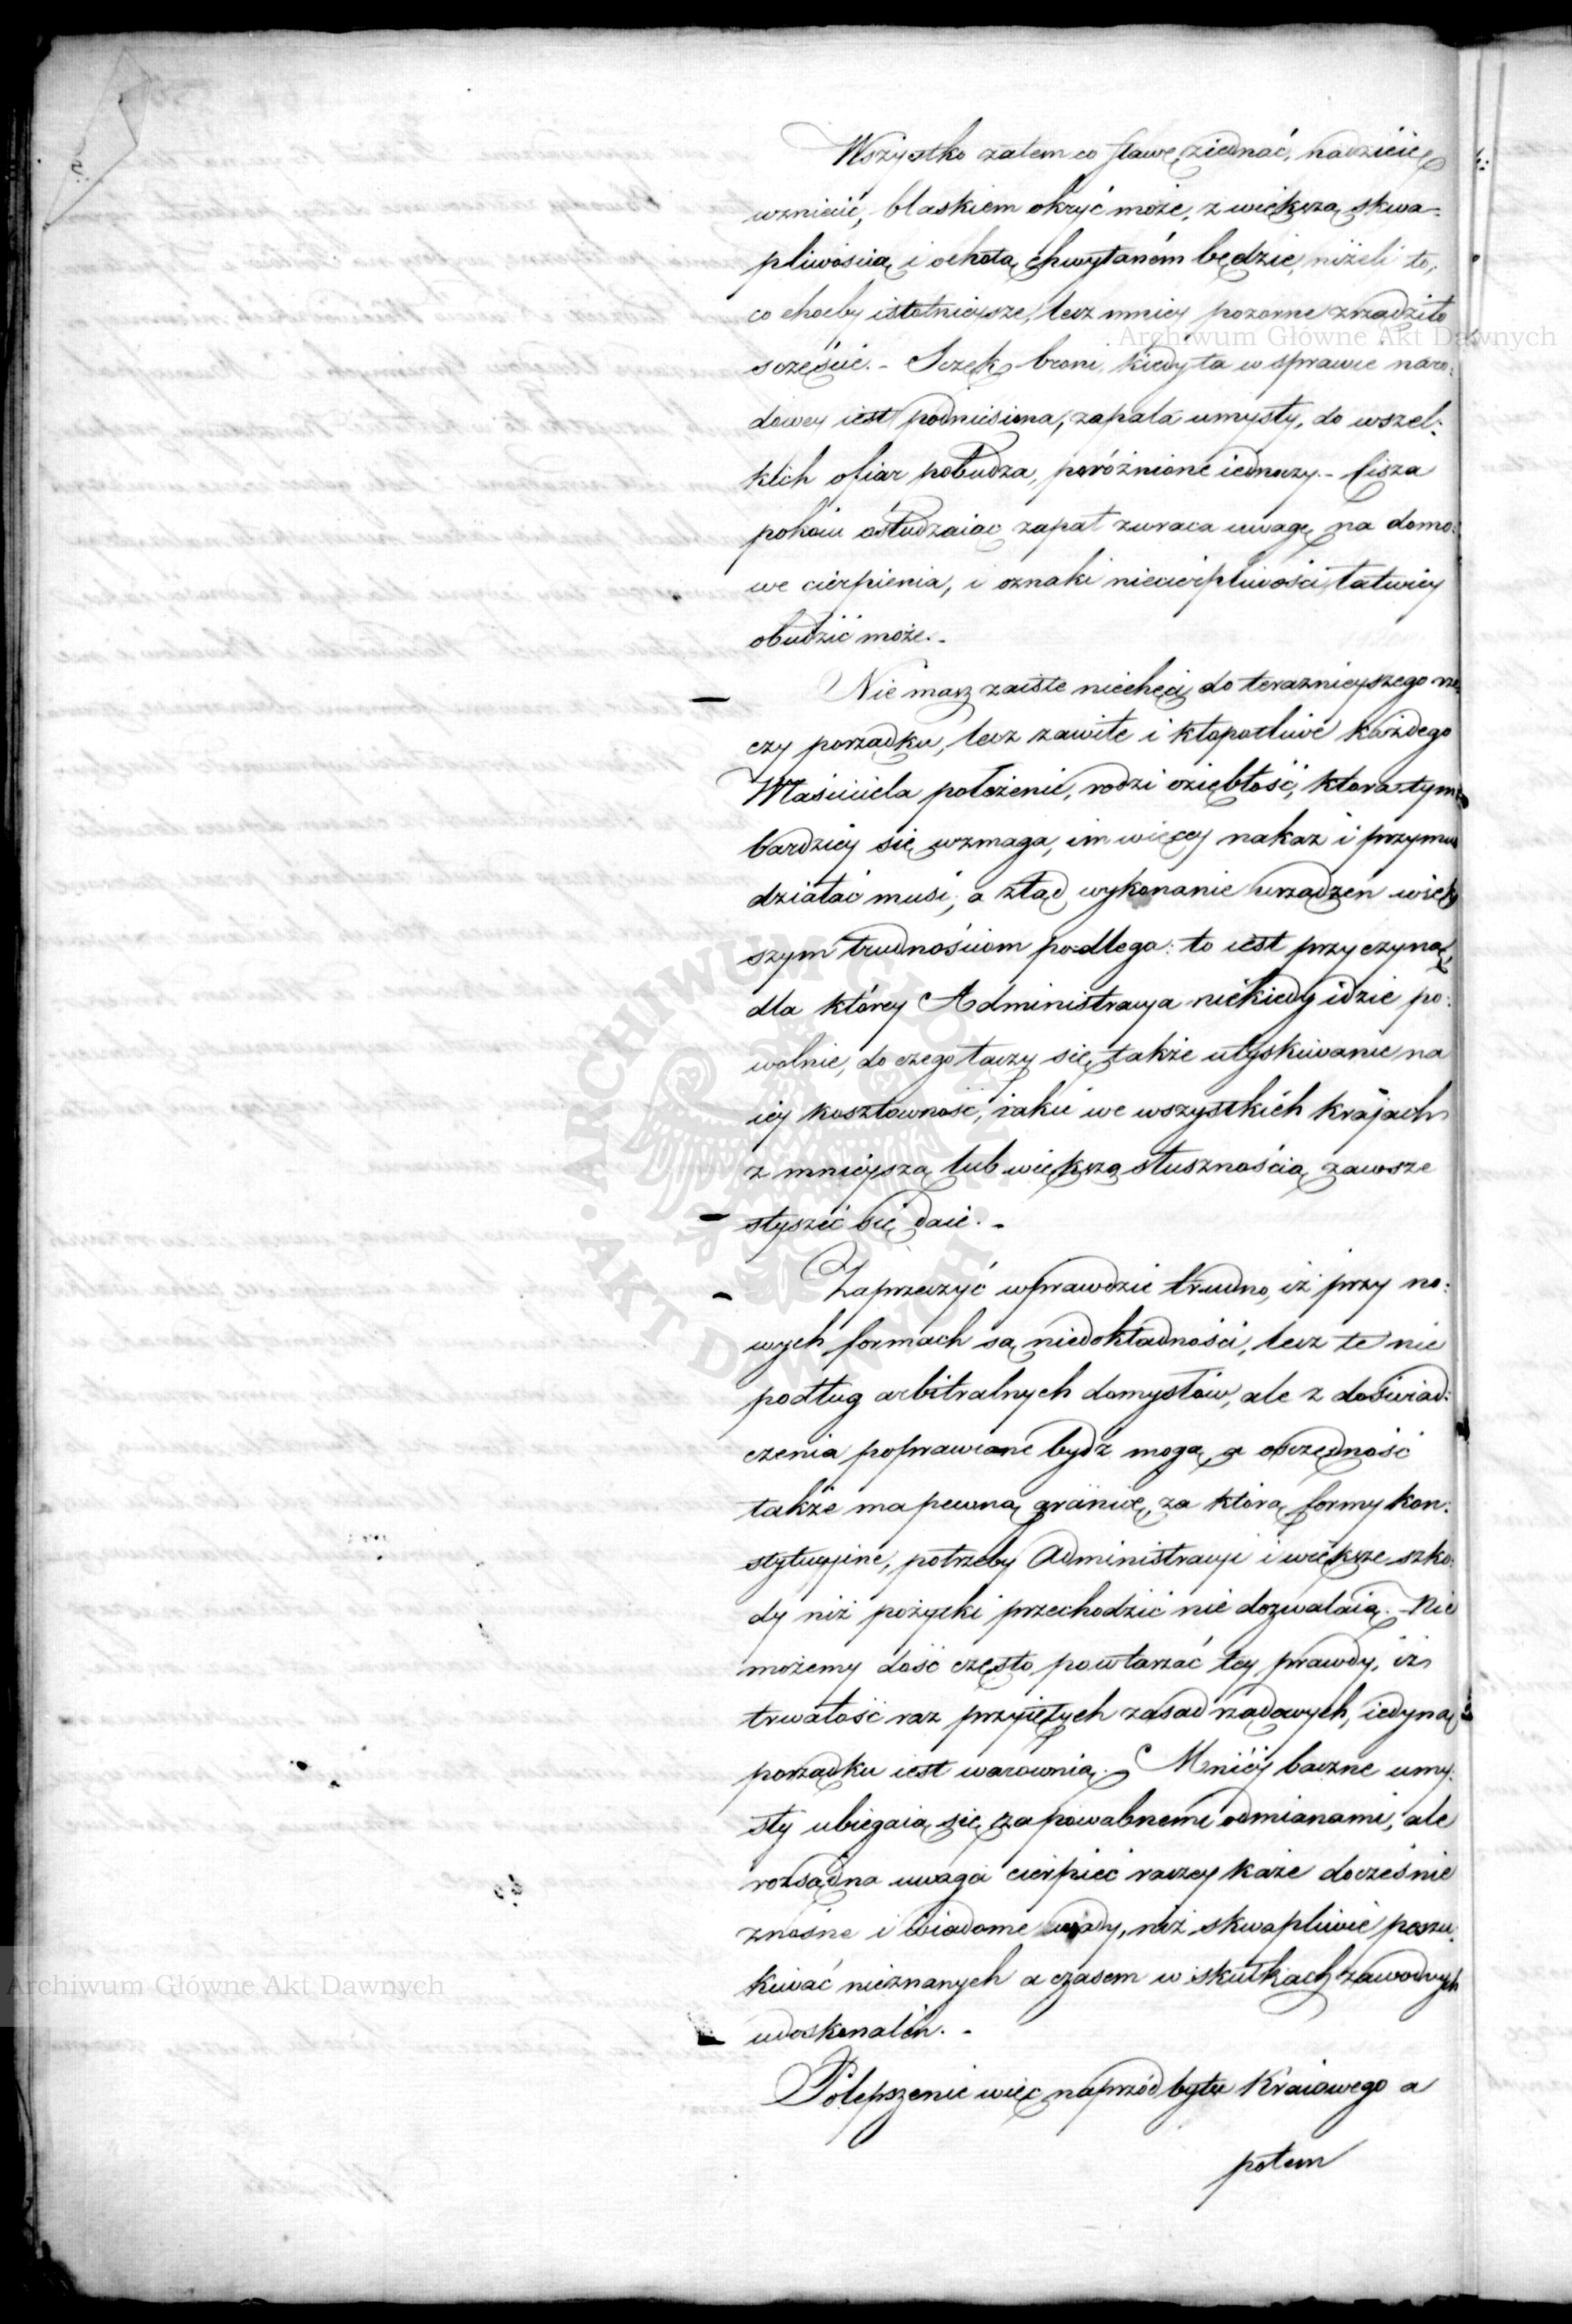 Wszystko zatem co sławę ziednać, nadzieię
wzniecić, blaskiem okryć może, z większą skwa-
pliwością i ochotą chwytaném będzie, niżeli to,
co choćby istotnieysze, lecz mniey pozorne zrządziło
szczęście. - Szczęk broni, kiedy ta w sprawie naro-
dowey iest podniesiona, zapala umysły, do wszel-
kich ofiar pobudza, poróżnione iednoczy. - Cisza
pokoiu ostudzaiąc zapał zwraca uwagę na domo-
we cierpienia, i oznaki niecierpliwości łatwiey
obudzić może. -
Nie masz zaiste niechęci do teraznieyszego rze-
czy porządku, lecz zawiłe i kłopotliwe każdego
Właściciela położenie, rodzi oziębłość, która tym
bardziey się wzmaga, im więcey nakaz i przymus
działać musi, a ztąd wykonanie urządzeń więk-
szym trudnościom podlega: to iest przyczyną,
dla którey Administracya niekiedy idzie po-
wolnie, do czego łączy się także utyskiwanie na
iey kosztowność, iakie we wszystkich krajach
z mnieyszą lub większą słusznością zawsze
słyszeć się daie. -
Zaprzeczyć wprawdzie trudno, iż przy no-
wych formach są niedokładności, lecz te nie
podług arbitralnych domysłów, ale z doświad-
czenia poprawiane bydź mogą, a oszczędność
także ma pewną granicę, za którą formy kon-
stytucyine, potrzeby Administracyi i większe szko-
dy niż pożytki przechodzić nie dozwalaią. - Nie
możemy dość często powtarzać tey prawdy, iż
trwałość raz przyiętych zasad rządowych, iedyną
porządku iest warownią. - Mniéy baczne umy-
sły ubiegaią się za powabnemi odmianami, ale
rozsądna uwaga cierpieć raczey każe docześnie
znośne i wiadome wady, niż skwapliwie poszu-
kiwać nieznanych a czasem w skutkach zawodnych
udoskonaleń. -
Polepszenie więc naprzód bytu Kraiowego a
potem
Archiwum Główne Akt Dawnych
Archiwum Główne Akt Dawnych
ARCHIWUM GŁÓWNE
AKT DAWNYCH